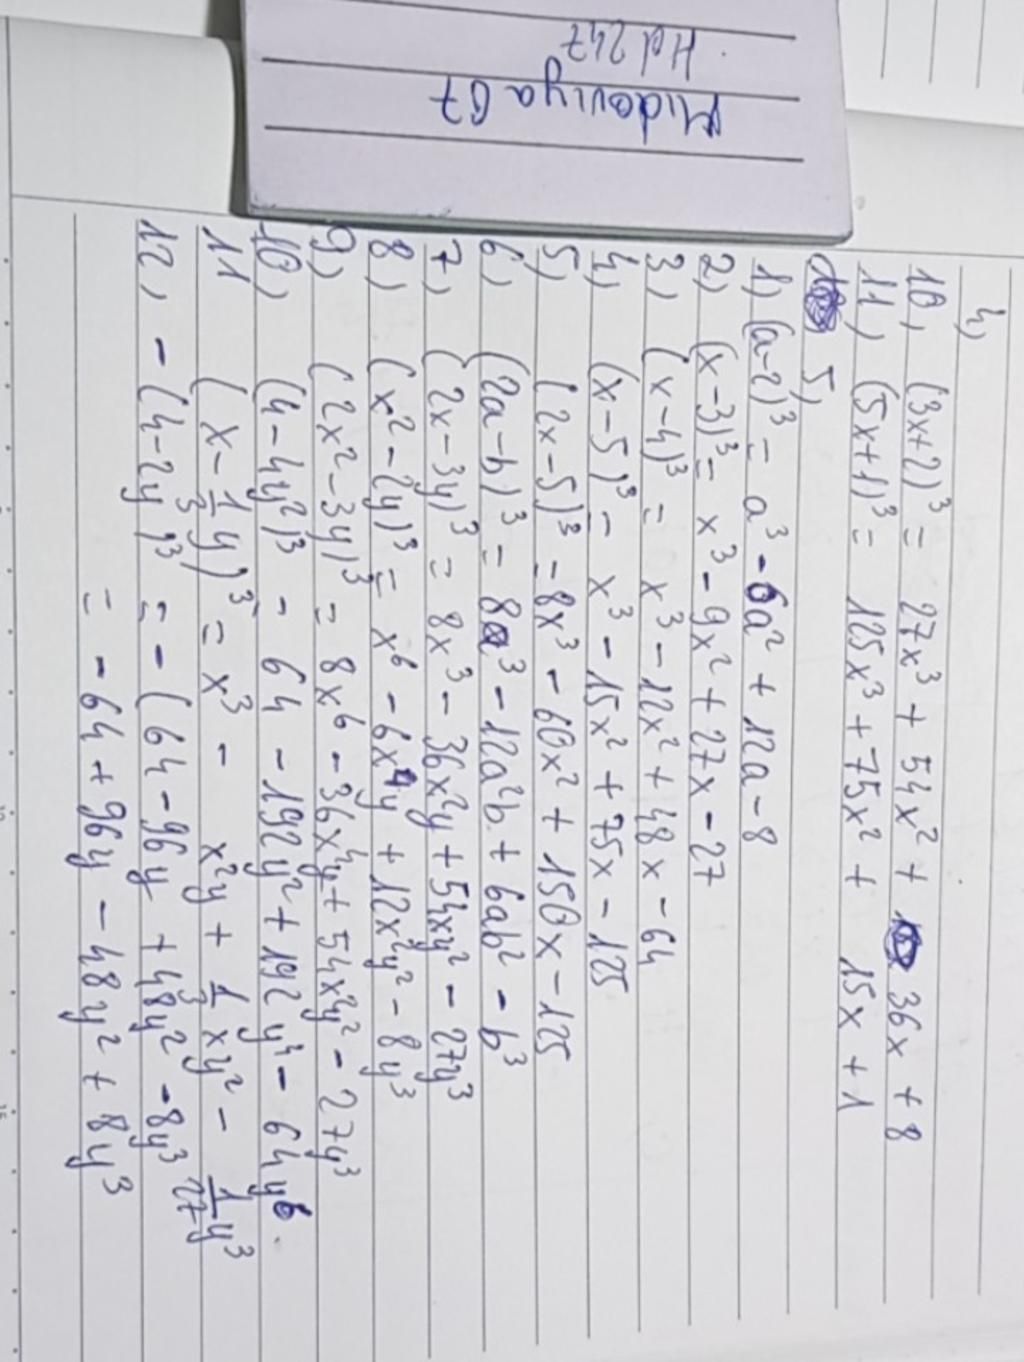 Midaviya 67
Hd 247
4,
10, (3x+2)³ = 27x³ + 54x² + 36x + 8
11, (5x+1)³ = 125x³ + 75x² + 15x + 1
5,
1) (a-2)³ = a³ - 6a² + 12a - 8
2) (x-3)³ = x³ - 9x² + 27x - 27
3) (x-4)³ = x³ - 12x² + 48x - 64
4) (x-5)³ = x³ - 15x² + 75x - 125
5) (2x-5)³ = 8x³ - 60x² + 150x - 125
6) (2a-b)³ = 8a³ - 12a²b + 6ab² - b³
7) (2x-3y)³ = 8x³ - 36x²y + 54xy² - 27y³
8) (x²-2y)³ = x⁶ - 6x⁴y + 12x²y² - 8y³
9) (2x²-3y)³ = 8x⁶ - 36x⁴y + 54x²y² - 27y³
10) (4-4y²)³ = 64 - 192y² + 192y⁴ - 64y⁶.
11 (x - 1/3 y)³ = x³ - x²y + 1/3 xy² - 1/27 y³
12, - (4-2y)³ = - (64 - 96y + 48y² - 8y³
= - 64 + 96y - 48y² + 8y³